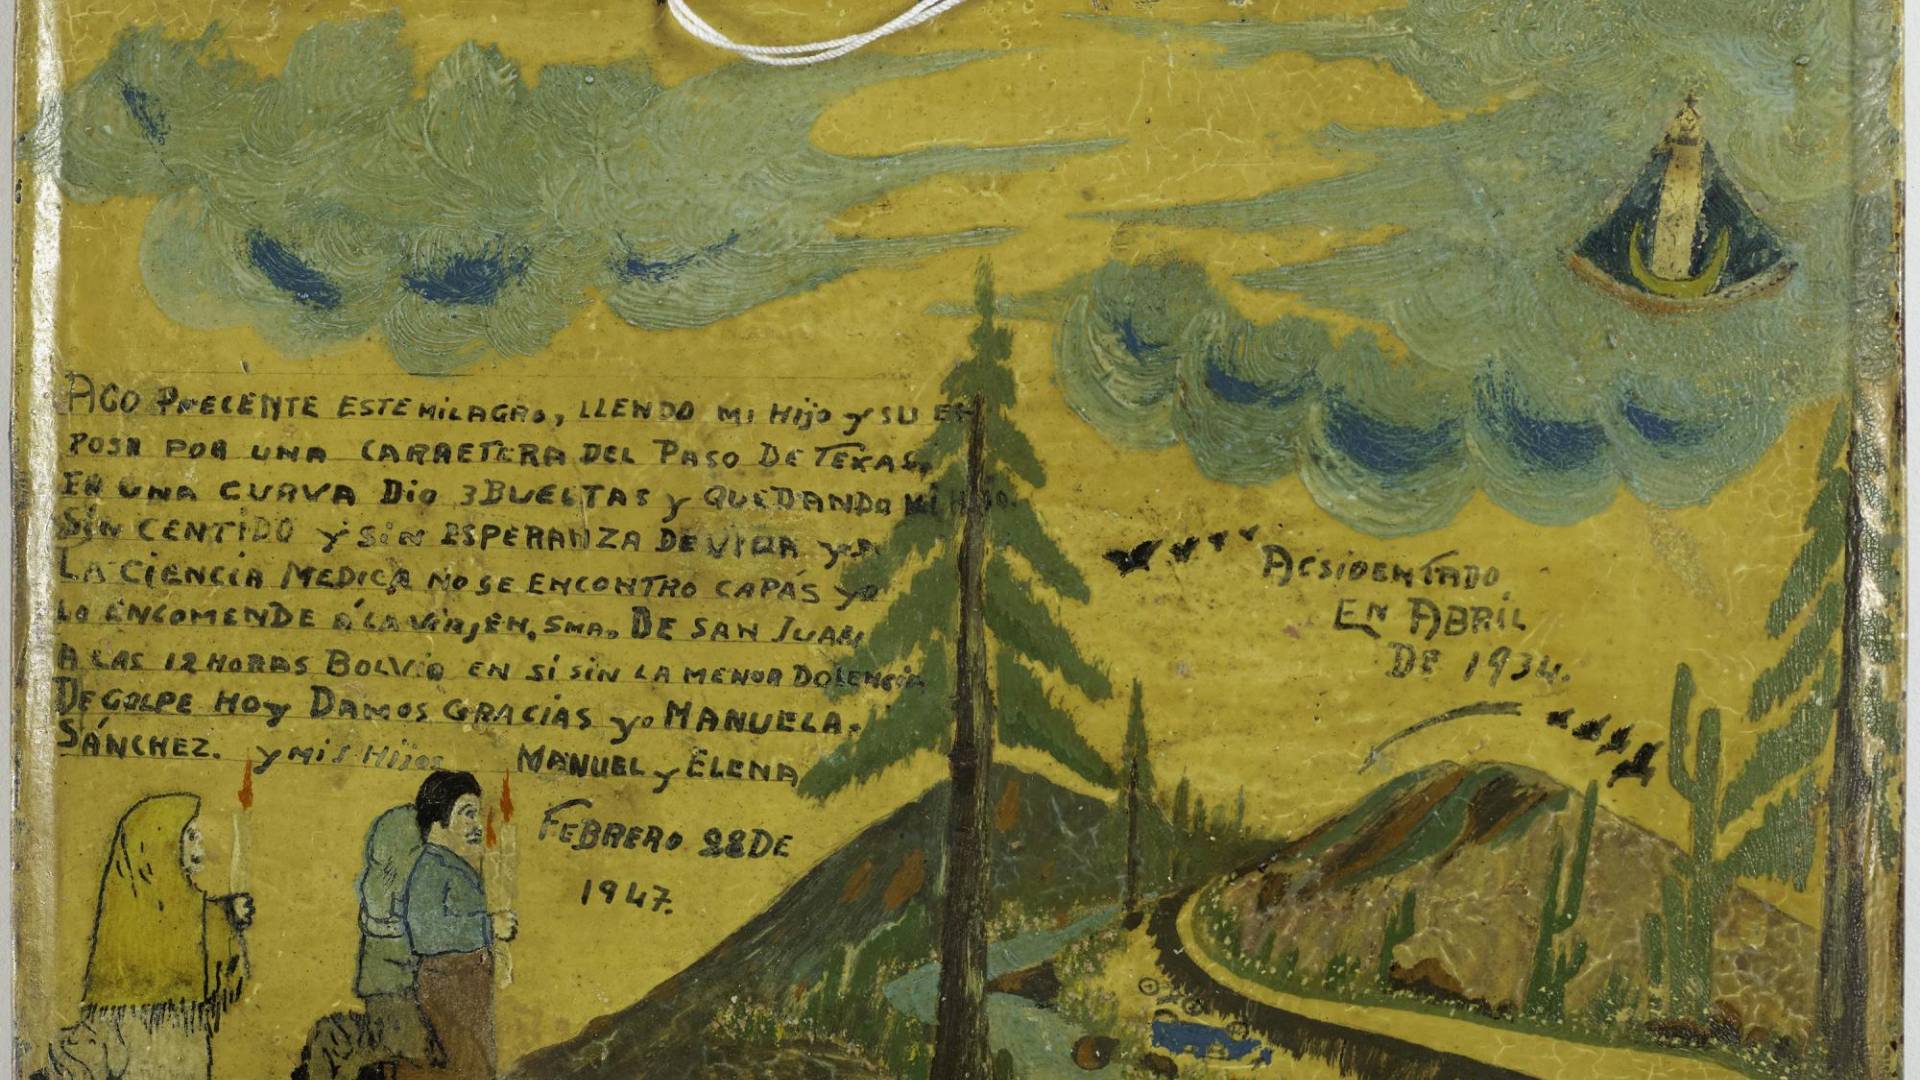 AGO PRECENTE ESTE MILAGRO, LLENDO MI HIJO y SU ES
POSA POR UNA CARRETERA DEL PASO DE TEXAS,
EN UNA CURVA DIO 3 BUELTAS y QUEDANDO MI HIJO.
SIN CENTIDO y SIN ESPERANZA DE VIDA yA
LA CIENCIA MEDICA NO SE ENCONTRO CAPÁS yO
LO ENCOMENDE Á LA VIRJEN, SMA. DE SAN JUAN
A LAS 12 HORAS BOLVIO EN SI SIN LA MENOR DOLENCIA
DE GOLPE HOY DAMOS GRACIAS yo MANUELA.
SÁNCHEZ. y MIS HIJOS MANUEL y ELENA
FEBRERO 28 DE
1947.
ACSIDENTADO
EN ABRIL
DE 1934.